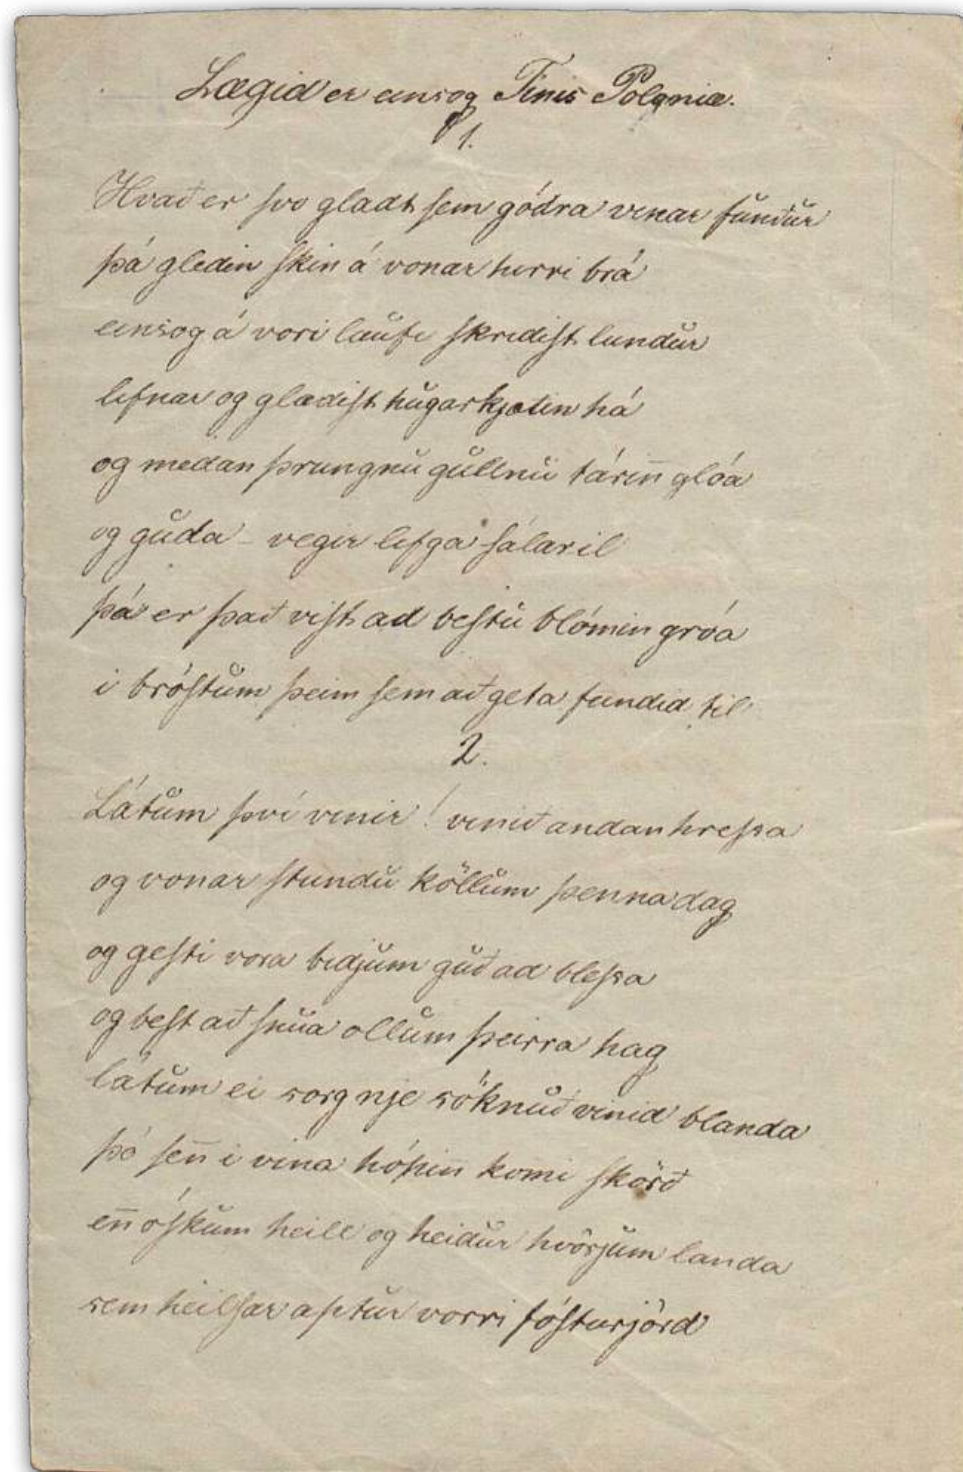 Lægid er einsog Finis Poloniæ.
1.
Hvað er svo gladt sem gódra vinar fundur
þá gledin skin á vonar hirri brá
einsog á vori laufi skrídist lundur
lifnar og glædist hugarkjætin há
og medan þrungnu gullnu tárin̄ glóa
og guda - vegir lifga sálar il
þá er það vist ad bestu blómin gróa
i bróstum þeim sem að geta fundid til
2.
Látum því vinir! vinið andan hressa
og vonar stundu köllum þenna dag
og gesti vora bidjum guð ad blessa
og best að snúa ollum þeirra hag
látum ei sorg nje söknuð vinid blanda
þó sen̄ i vina hópin̄ komi skörð
en̄ óskum heill og heidur hvörjum landa
sem heilsar aptur vorri fósturjörd